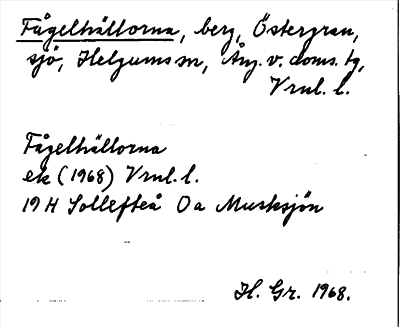 Fågelhällorna, berg, Östergran,
sjö, Helgums sn, Ång. v. doms. tg,
Vrul. l.
Fågelhällorna
ek (1968) Vrul. l.
19 H Sollefteå 0a Musksjön
H. Gr. 1968.